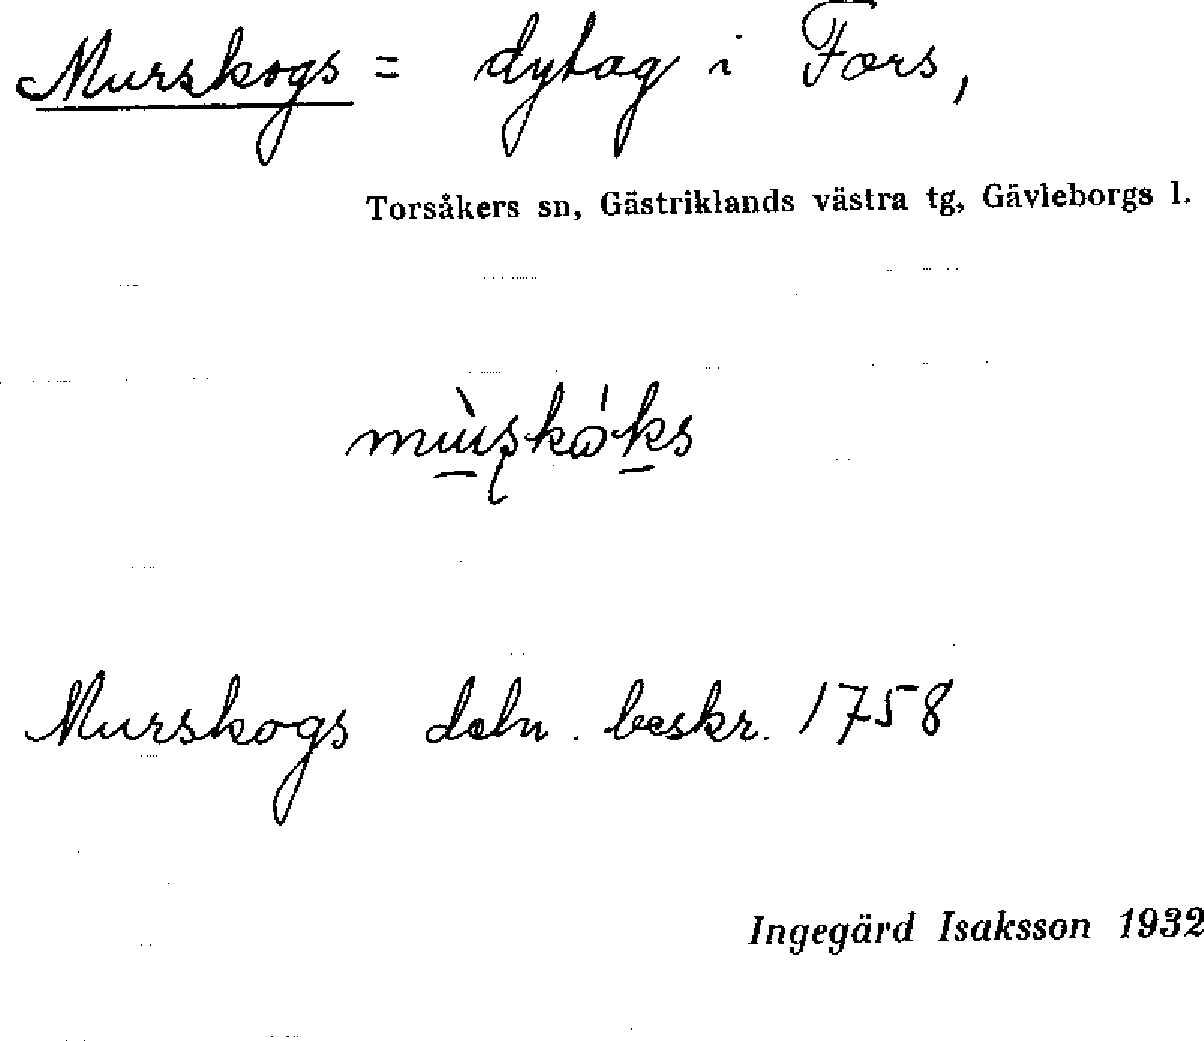 Murskogs = dytag i Fors,
Torsåkers sn, Gästriklands västra tg, Gävleborgs l.
Murskogs deln. beskr. 1758
Ingegärd Isaksson 1932